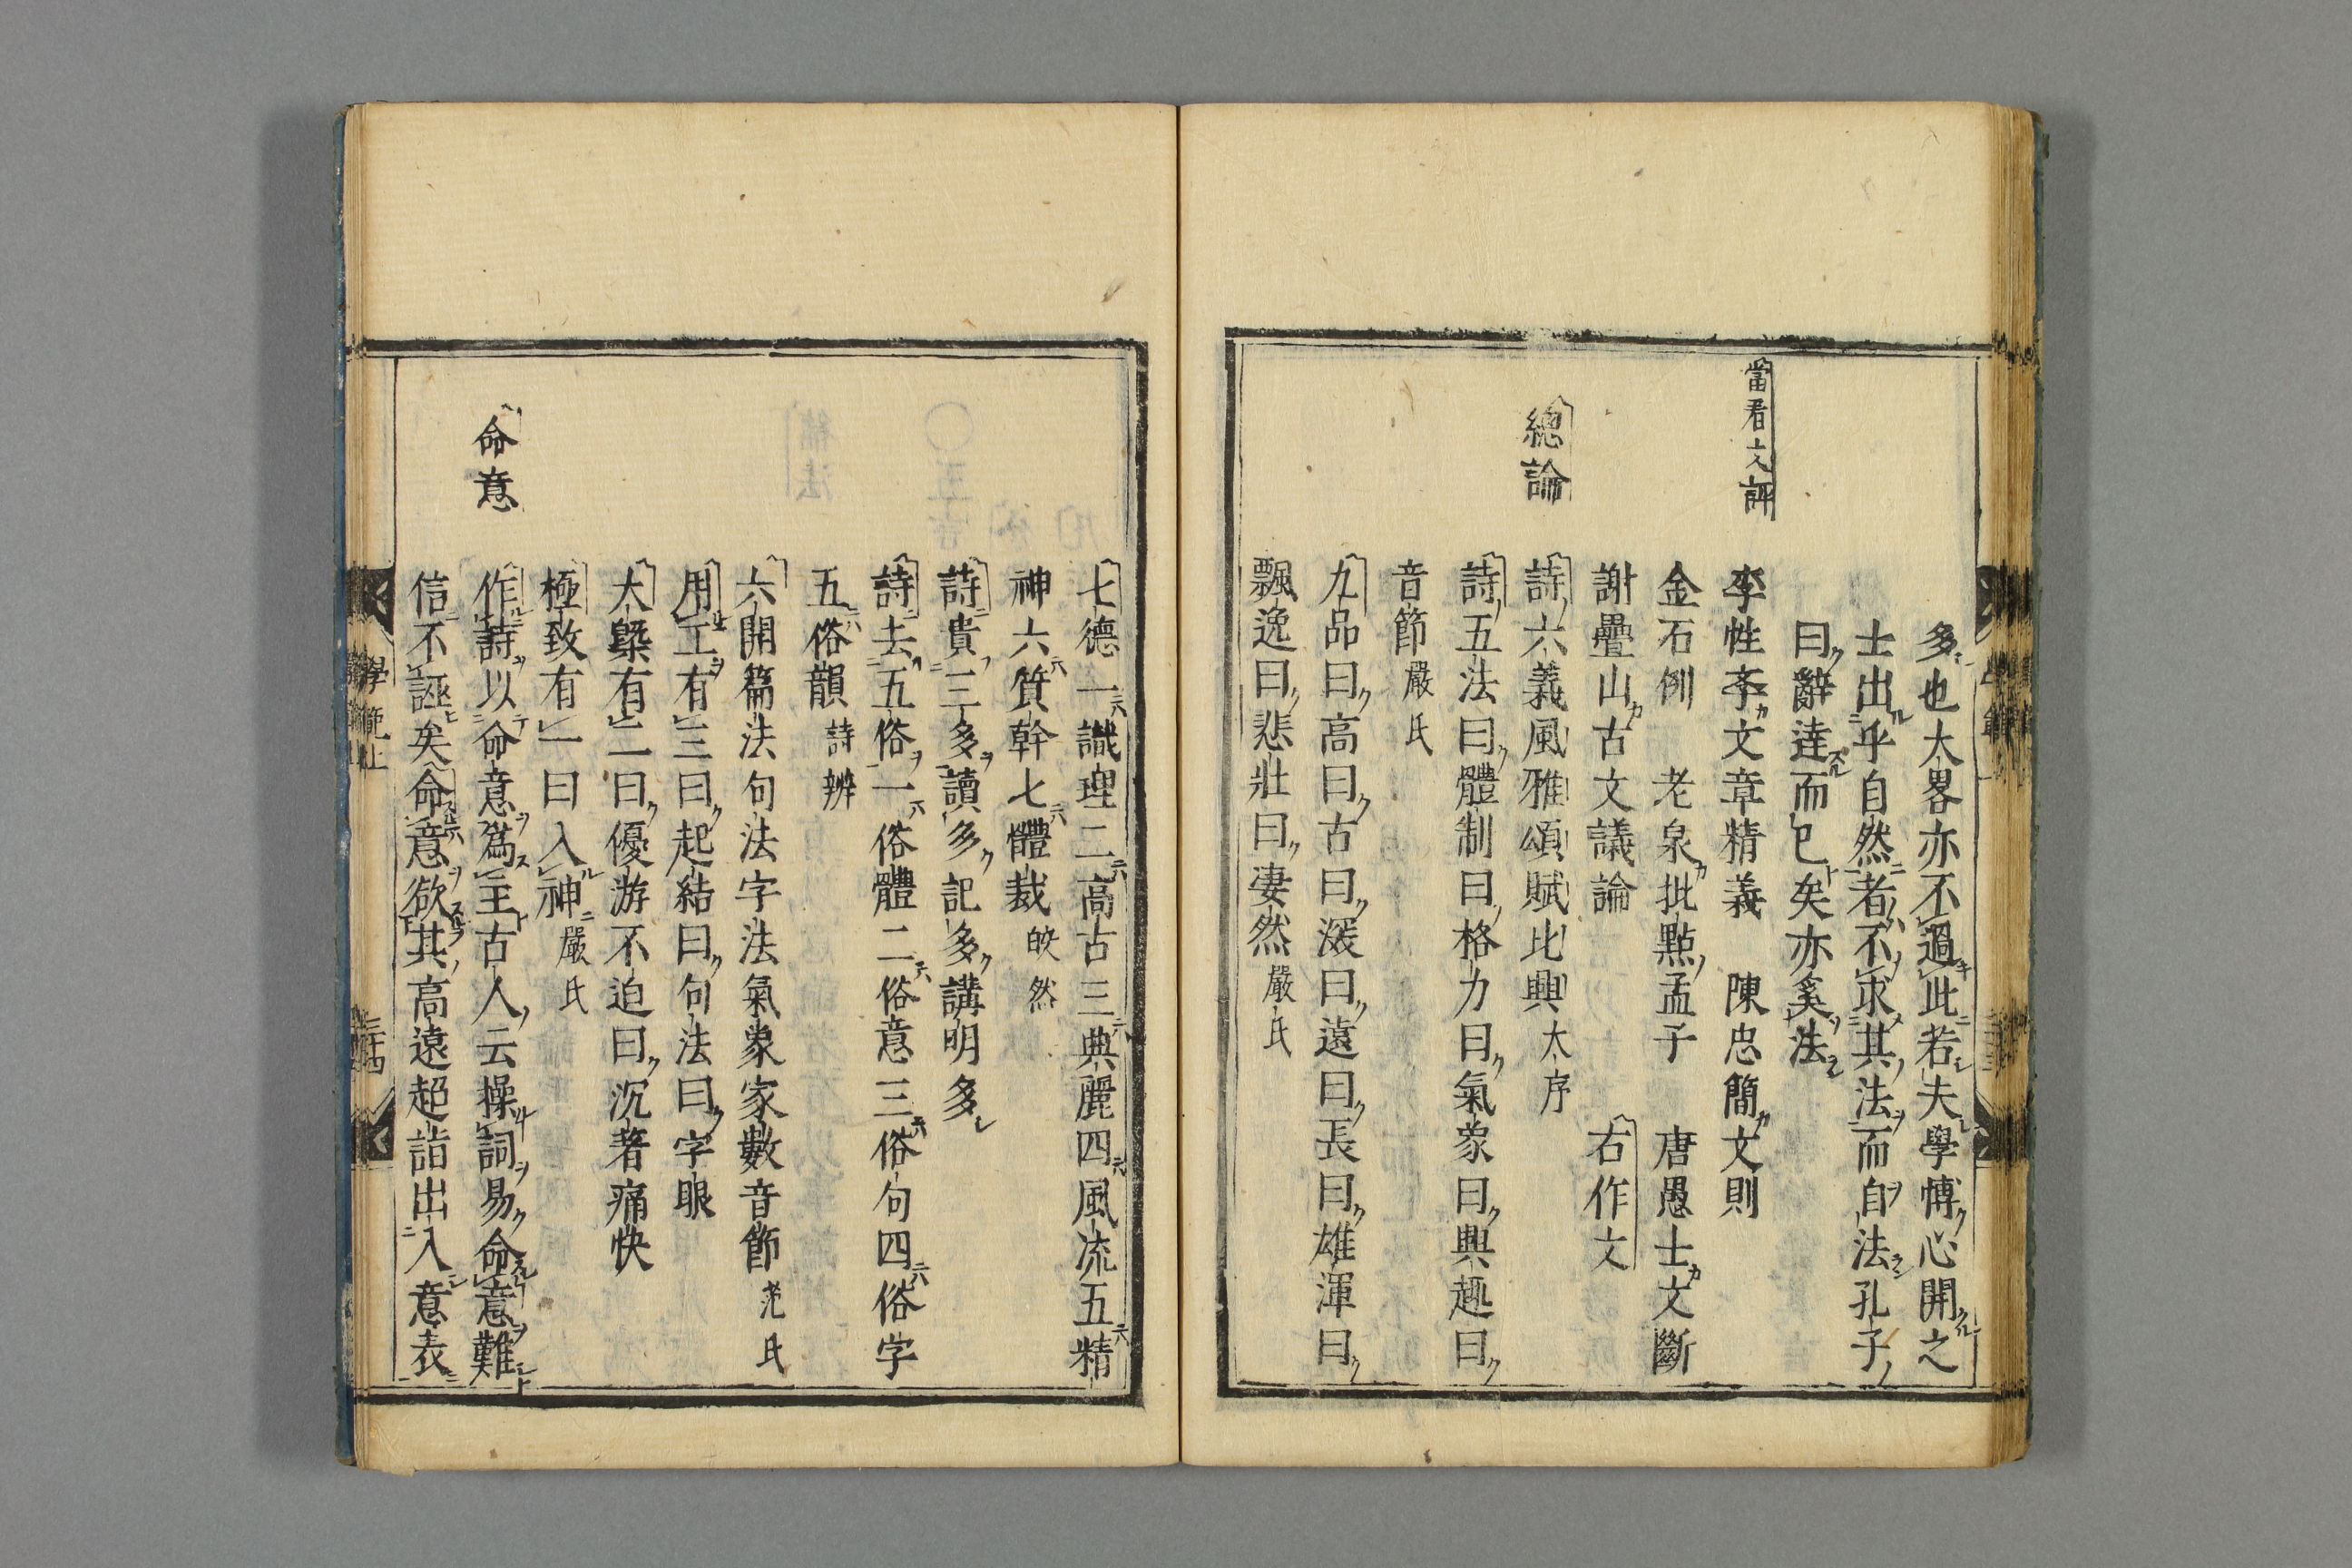 多也大畧亦不過此若夫學慱心開之
士出乎自然者不求其法而自法孔子
曰辭達而已矣亦奚法
當看文評
李性李文章精義 陳忠簡文則
金石例 老泉批點孟子 唐愚士文斷
謝疊山古文議論 右作文
總論
詩六義風雅頌賦比興 大序
詩五法曰體制曰格力曰氣象曰興趣曰
音節 嚴氏
九品曰高曰古曰深曰遠曰長曰雄渾曰
飄逸曰悲壯曰凄然 嚴氏
七德一識理二高古三典麗四風流五精
神六質幹七體裁 皎然
詩貴三多讀多記多講明多
詩去五俗一俗體二俗意三俗句四俗字
五俗韻 詩辨
六開篇法句法字法氣象家數音節 氏
用工有三曰起結曰句法曰字眼
大槩有二曰優游不迫曰沉著痛快
極致有一曰入神 嚴氏
命意
作詩以命意爲主古人云操詞易命意難
信不誣矣命意欲其高遠超詣出入意表
學範上
二十四